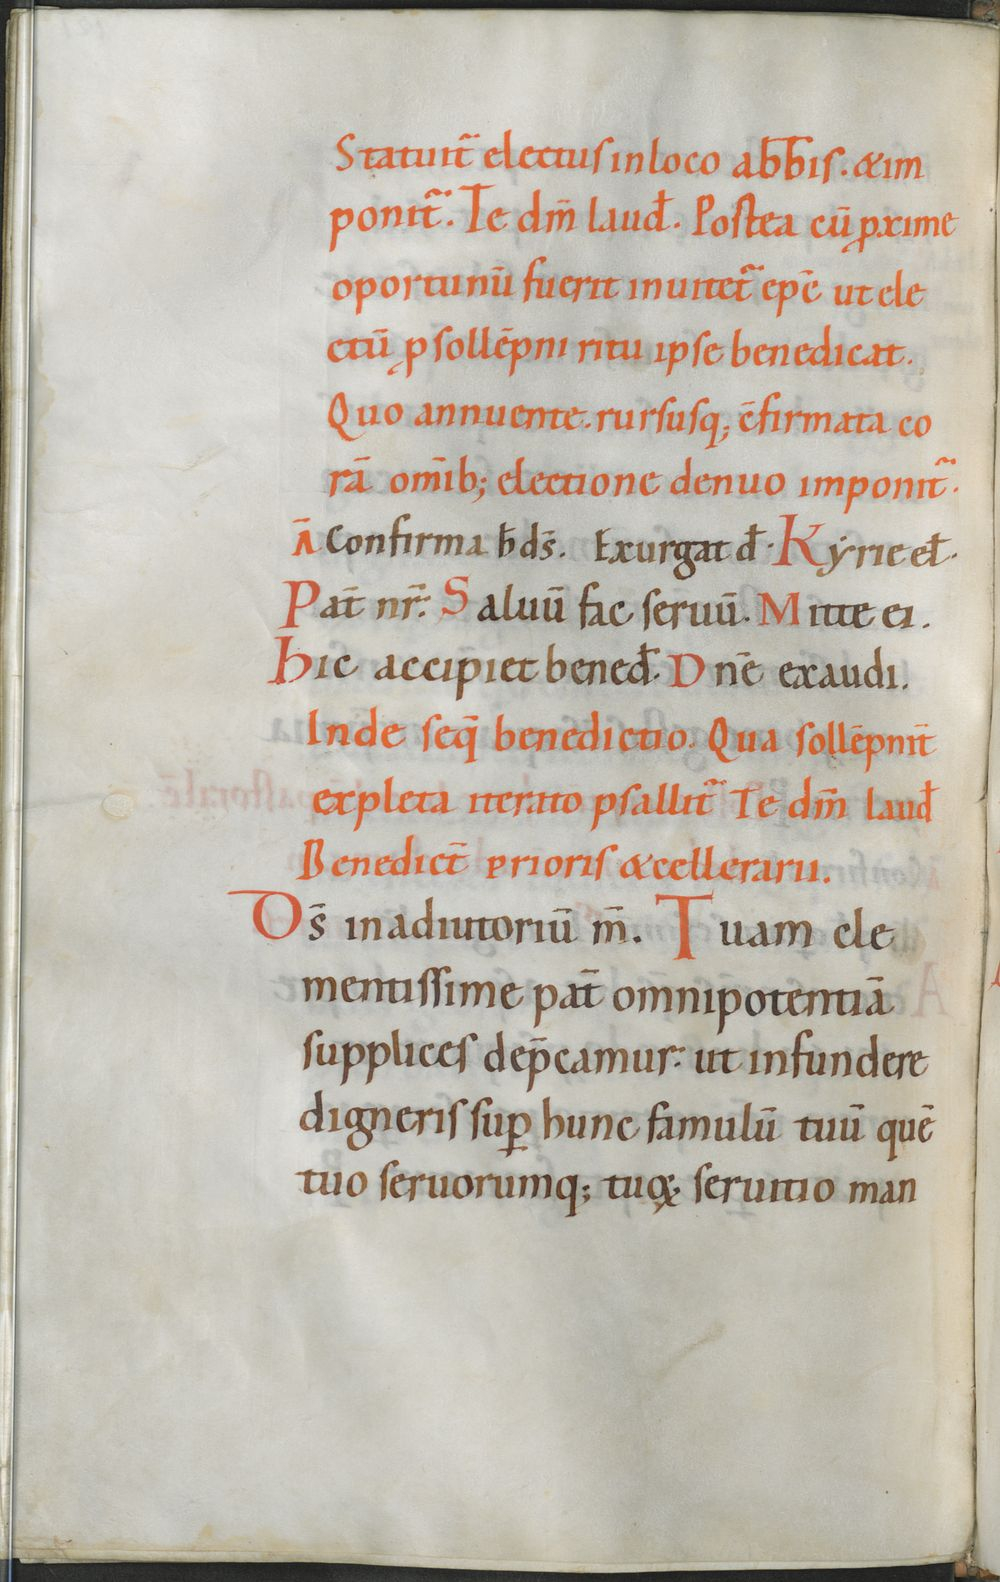 Statuit̃ electus in loco ab̄b̄is. & im
ponit̃. Te dm̄ laud̄. Postea cū ꝓxime
oportunū fuerit inuitet̃ epē ut ele
ctū ꝓ sollēpni ritu ipse benedicat.
Quo annuente. rursusq; c̄firmata co
rā om̄ib; electione denuo imponit̃.
Ā Confirma h̄ ds̄. Exurgat d̄. Kẏrie el̄.
Pat̄ nr̄. Saluū fac seruū. Mitte ei.
Hic accipiet bened̄. Dnē exaudi.
Inde seq̄ benedictio. Qua sollēpnit̄
expleta iterato psallit̃ Te dm̄ laud̄
Benedict̄ prioris & cellerarii.
Ds̄ in adiutoriū m̄. Tuam cle
mentissime pat̄ omnipotentiā
supplices dep̄camur. ut infundere
digneris suꝑ hunc famulū tuū quē
tuo seruorumq; tuoꝝ seruitio man